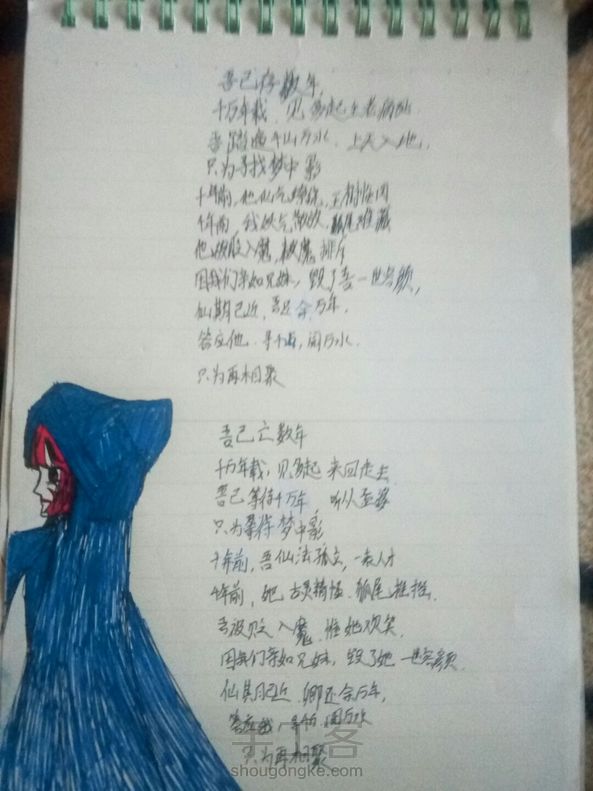 吾已存数年,
千万年载,见多起生老病死.
吾踏遍千仙万水,上天入地,
只为寻找梦中影
千年前,他仙气缭绕,玉树临风
千年前,我妖气散放,狐尾难藏
他被贬入魔,被魔排斥
因我们亲如兄妹,毁了吾一世容颜,
仙期已近,吾还余万年,
答应他.寻千山,阅万水.
只为再相聚
吾已亡数年
千万年载,见多起来回走去
吾已等待千万年 听从
只为等待梦中影
千年前,吾仙法孤立,一表人才
千年前,她古灵精怪.狐尾摇摇.
吾被贬入魔.惟她欢笑.
因我们亲如兄妹,毁了她一世容颜.
仙期已近.卿还余万年,
答应我,寻千山.阅万水
只为再相聚
手工客
shougongke.com